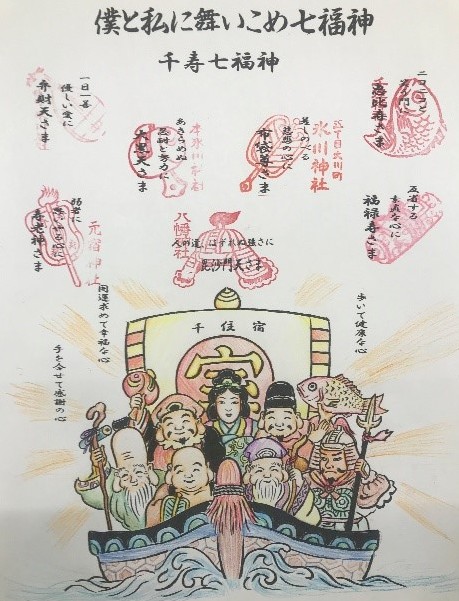 僕と私に舞いこめ七福神
千寿七福神
ニコニコと
恵比寿さま
差しのべる
慈悲の心に
布袋尊さま
五丁目大川町
氷川神社
あきらめぬ
忍耐と努力に
大黒天さま
本氷川神社
一日一善
優しい愛に
弁財天さま
反省する
素直な心に
福禄寿さま
八幡社
人の道 はずれぬ強さに
毘沙門天さま
元宿神社
弱者に
寿老神さま
歩いて健康な心
開運求めて幸福な心
手を合せて感謝の心
千住宿
宝